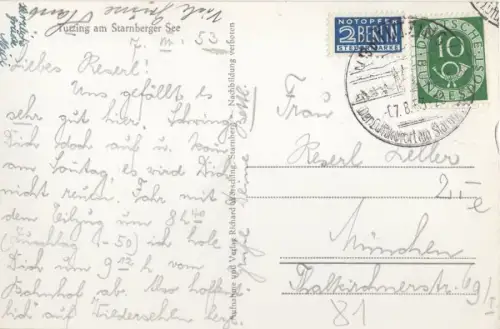 Tutzing am Starnberger See
7. III. 53
Liebes Reserl!
Uns gefällt es
sehr gut hier! Schwing
Dich doch auf u. komm
am Sonntag, es wird Dich
nicht reuen. Fahr mit
dem Eilzug um 8 h 40
(Zuschlag 1-50) ich hole
Dich um 9 12 h vom
Bahnhof ab. Also hoffent-
lich auf Wiedersehen
Viele Grüße
Nachbildung verboten
Aufnahme und Verlag Richard Wörsching, Starnberg
NOTOPFER
2 BERLIN
STEUERMARKE
DEUTSCHE BUNDESPOST
10
-7.8.
Der Luftkurort am Starnb
Frau
Reserl Zeller
München
Thalkirchnerstr. 69/I
2,-e
81